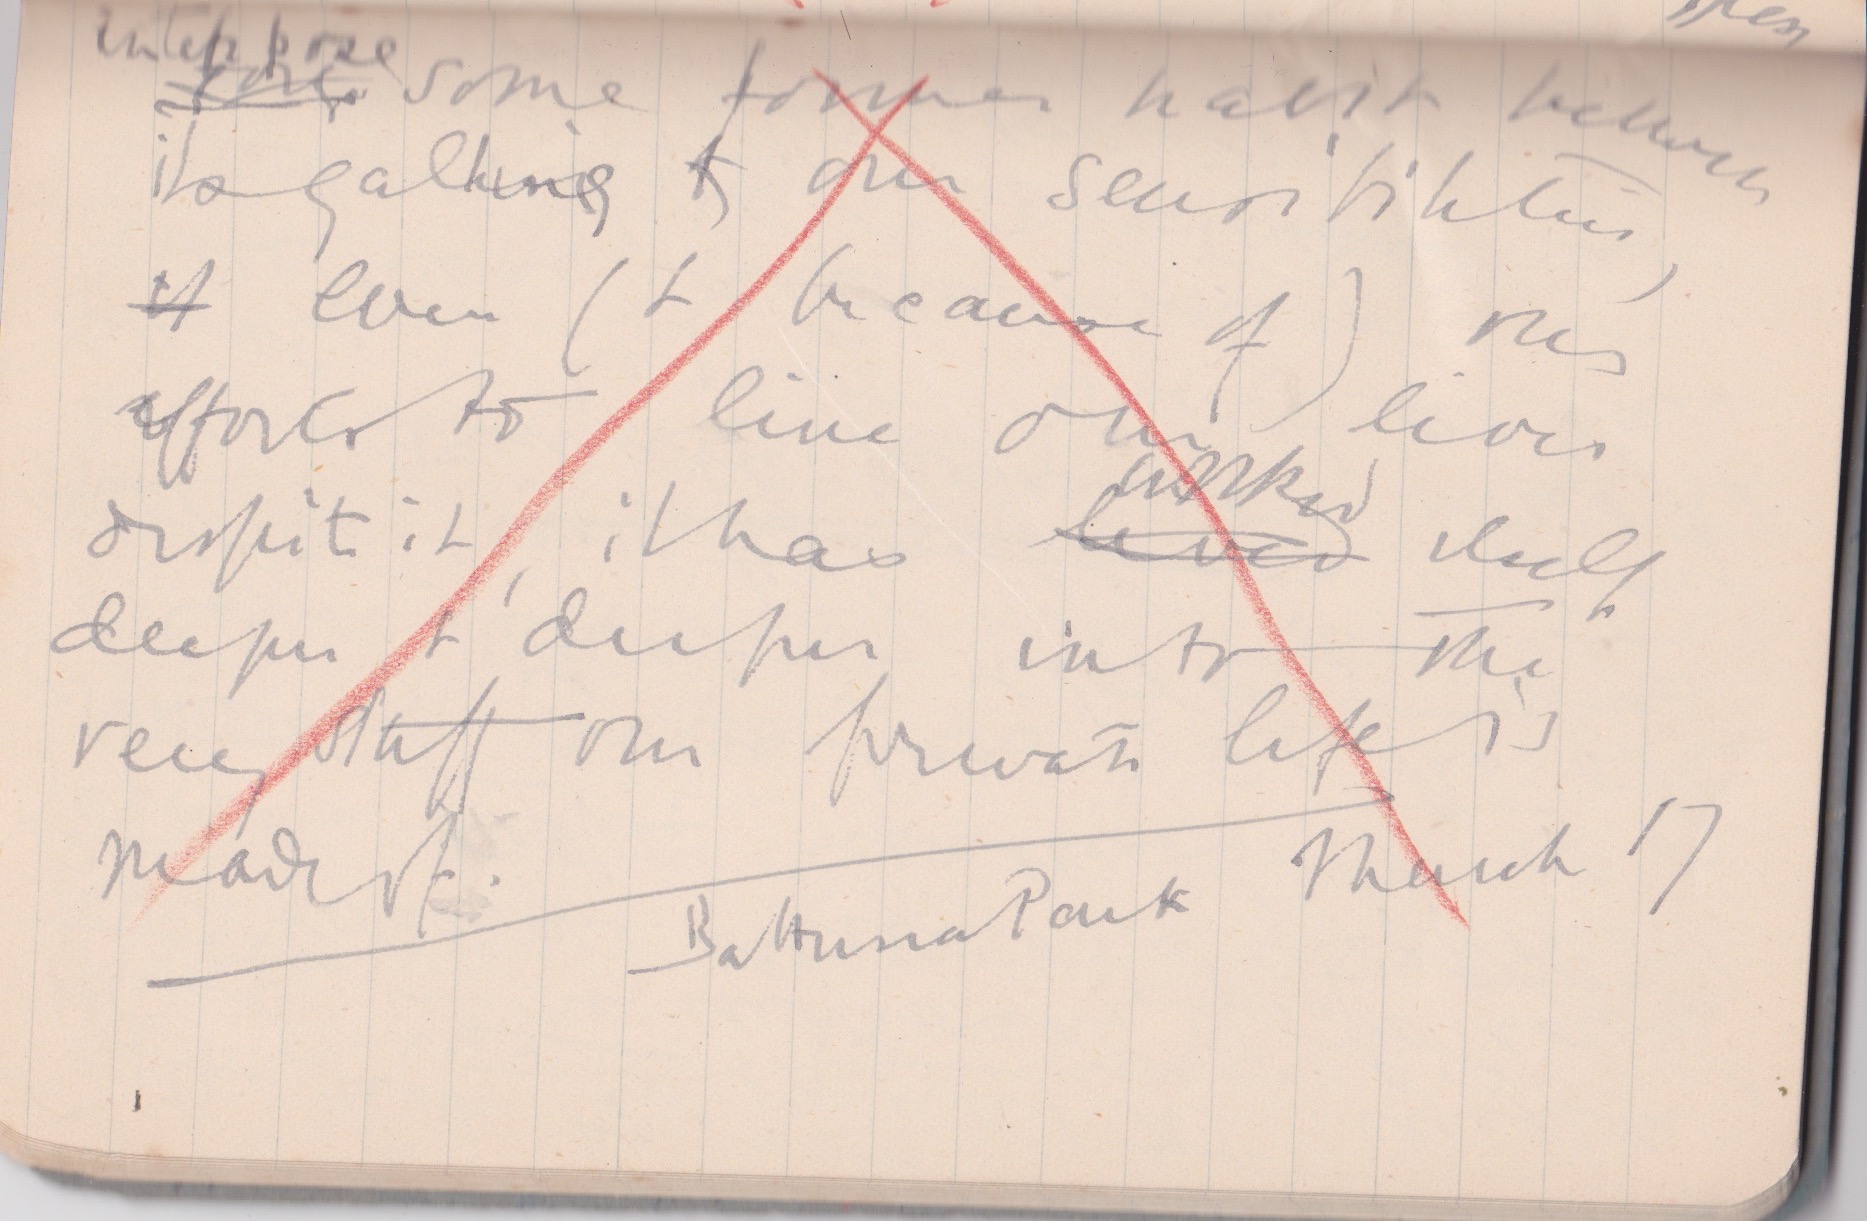 interpose
some former habit between
its galling & our sensibilities,
it even (& because of) our
efforts to live our lives
worked
despite it, it has lived itself
deeper & deeper into the
very stuff our private life is
made of.
Battersea Park March 17